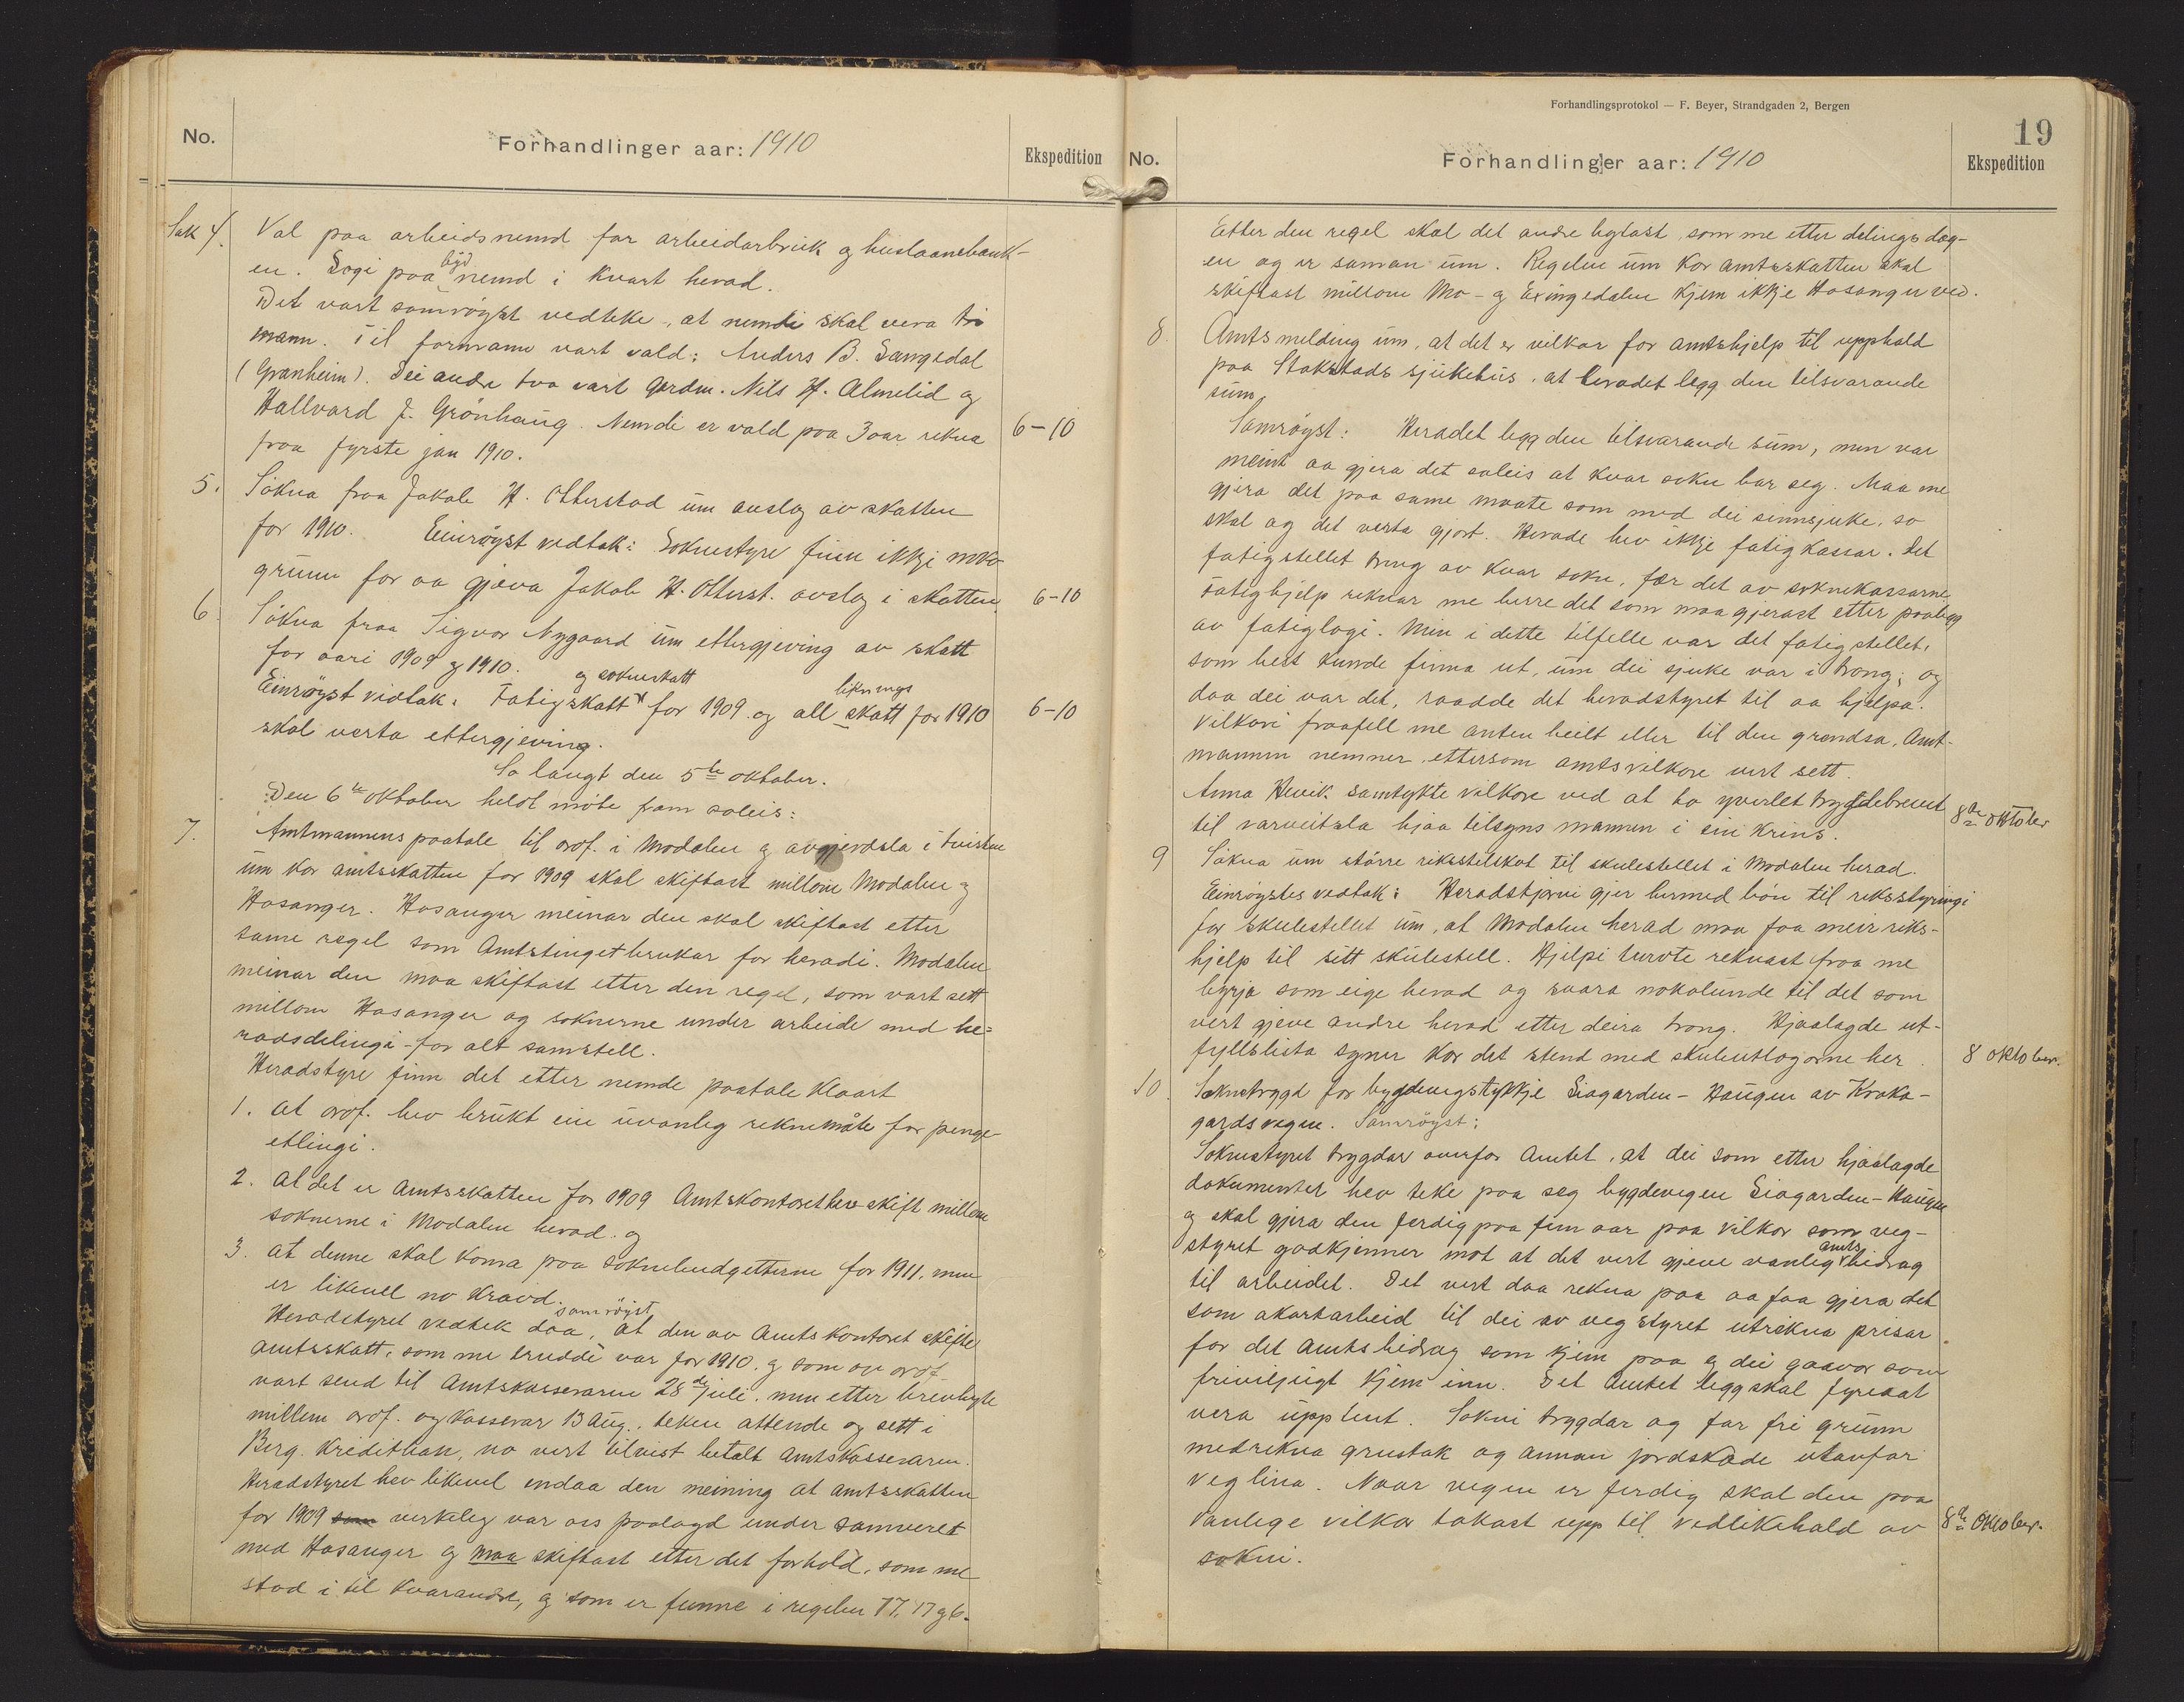 No.
Forhandlinger aar: 1910
Ekspedition
Sak 4. Val paa arbeidsnemd for arbeidarbruk og huslaanebank-
en. Logi paa byd nemd i kvart herad.
Det vart samrøyst vedteke, at nemdi skal vera tri
mann. Til formann vart vald: Anders B. Langedal
(Granheim). Dei andre tvo vart Gardm. Nils H. Almelid og
Hallvard J. Grönhaug. Nemdi er vald paa 3 aar rekna 6-10
fraa fyrste jan 1910.
5. Søkna fraa Jakob H. Otterstad um avslag av skatten
for 1910. Einrøyst vedtak: Soknestyre finn ikkje noko
grunn for aa gjeva Jakob H. Otterst. avslag i skatten 6-10
6. Søkna fraa Sigvor Nygaard um ettergjeving av skatt
for aari 1909 og 1910.
Einrøyst vedtak: Fatigskatt og sokneskatt for 1909 og all liknings skatt for 1910 6-10
skal verta ettergjeving.
So langt den 5te oktober.
Den 6te oktober heldt møte fram soleis:
7. Amtmannens paatale til ordf. i Modalen og avgjerdsla i tvisten
um kor amtsskatten for 1909 skal skiftast millom Modalen og
Hosanger. Hosanger meinar den skal skiftast etter
same regel som Amtstinget brukar for heradi. Modalen
meinar den maa skiftast etter den regel, som vart sett
millom Hosanger og soknerne under arbeide med he-
radsdelingi - for alt samstell.
Heradstyre finn det etter nemde paatale klaart
1. at ordf. hev brukt ein uvanleg reknemåte for penge-
etlingi.
2. At det er Amtsskatten for 1909 Amtskontoret hev skift millom
soknerne i Modalen herad. og
3. at denne skal koma paa soknebudgetterne for 1911. men
er likevel no kravd.
Heradstyret vedtek daa, samrøyst at den av Amtskontoret skifte
amtsskatt, som me trudde var for 1910. og som av ordf.
vart send til Amtskasseraren 28de juli. men etter brevbyte
millom ordf. og kasserar 13 Aug. teken attende og sett i
Berg. Kreditbank, no vert tilvist betalt Amtskasseraren.
Heradstyret hev likevel endaa den meining at amtsskatten
for 1909 som verkeleg var oss paalagd under samveret
med Hosanger og maa skiftast etter det forhold, som me
stod i til kvarandre, og som er funne i regelen 77, 17 og 6.
Forhandlingsprotokol — F. Beyer, Strandgaden 2, Bergen
19
No.
Forhandlinger aar: 1910
Ekspedition
Etter den regel skal det andre bytast som me etter delings dag-
en og er saman um. Regelen um kor amtsskatten skal
skiftast millom Mo- og Exingedalen kjem ikkje Hosanger ved.
8. Amts melding um, at det er vilkor for amtshjelp til upphald
paa Stokstads sjukehus, at heradet legg den tilsvarande
sum.
Samrøyst: Heradet legg den tilsvarande sum, men var
meint aa gjera det soleis at kvar sokn bar seg. Maa me
gjera det paa same maate som med dei sinnsjuke, so
skal og det verta gjort. Herade hev ikkje fatigkassar. Det
fatigstellet treng av kvar sokn, fær det av soknekassarne.
Fatighjelp reknar me berre det som maa gjerast etter paalegg
av fatiglogi. Men i dette tilfelle var det fatigstellet,
som best kunde finna ut, um dei sjuke var i trong; og
daa dei var det, raadde det heradstyret til aa hjelpa.
Vilkori fraafell me anten heilt eller til den grendsa, Amt-
mannen nemner, ettersom amtsvilkore vert sett.
Anna Hevik samtykte vilkore ved at ho yverlet trygdebrevet 8de oktober
til varveitsla hjaa tilsyns mannen i sin krins.
9 Søkna um større riksstilskot til skulestellet i Modalen herad.
Einrøystes vedtak: Heradstjorni gjer hermed bøn til riksstyringi
for skulestellet um, at Modalen herad maa faa meir riks-
hjelp til sitt skulestell. Hjelpi turvte reknast fraa me
byrja som eige herad og svara nokolunde til det som
vert gjeve andre herad etter deira trong. Hjaalagde ut-
fyllslista syner kor det stend med skuleutlogorne her. 8 oktober.
10. Soknetrygd for bygdevegstykkje Siagarden - Haugen av Kroka-
gardsvegen. Samrøyst:
Soknestyret trygdar overfor Amtet, at dei som etter hjaalagde
dokumenter hev teke paa seg bygdevegen Siagarden - Haugen
og skal gjera den ferdig paa fem aar paa vilkor som veg-
styret godkjenner mot at det vert gjeve vanleg amts bidrag
til arbeidet. Det vert daa rekna paa aa faa gjera det
som akortarbeid til dei av vegstyret utrekna prisar
for det Amtsbidrag som kjem paa og dei gaavor som
friviljugt kjem inn. Det Amtet legg skal fyreaat
vera upptent. Sokni trygdar og for fri grunn
medrekna grustak og annan jordskade utanfor
veglina. Naar vegen er ferdig skal den paa
vanlege vilkor takast upp til vedlikehald av 8de Oktober.
sokni.